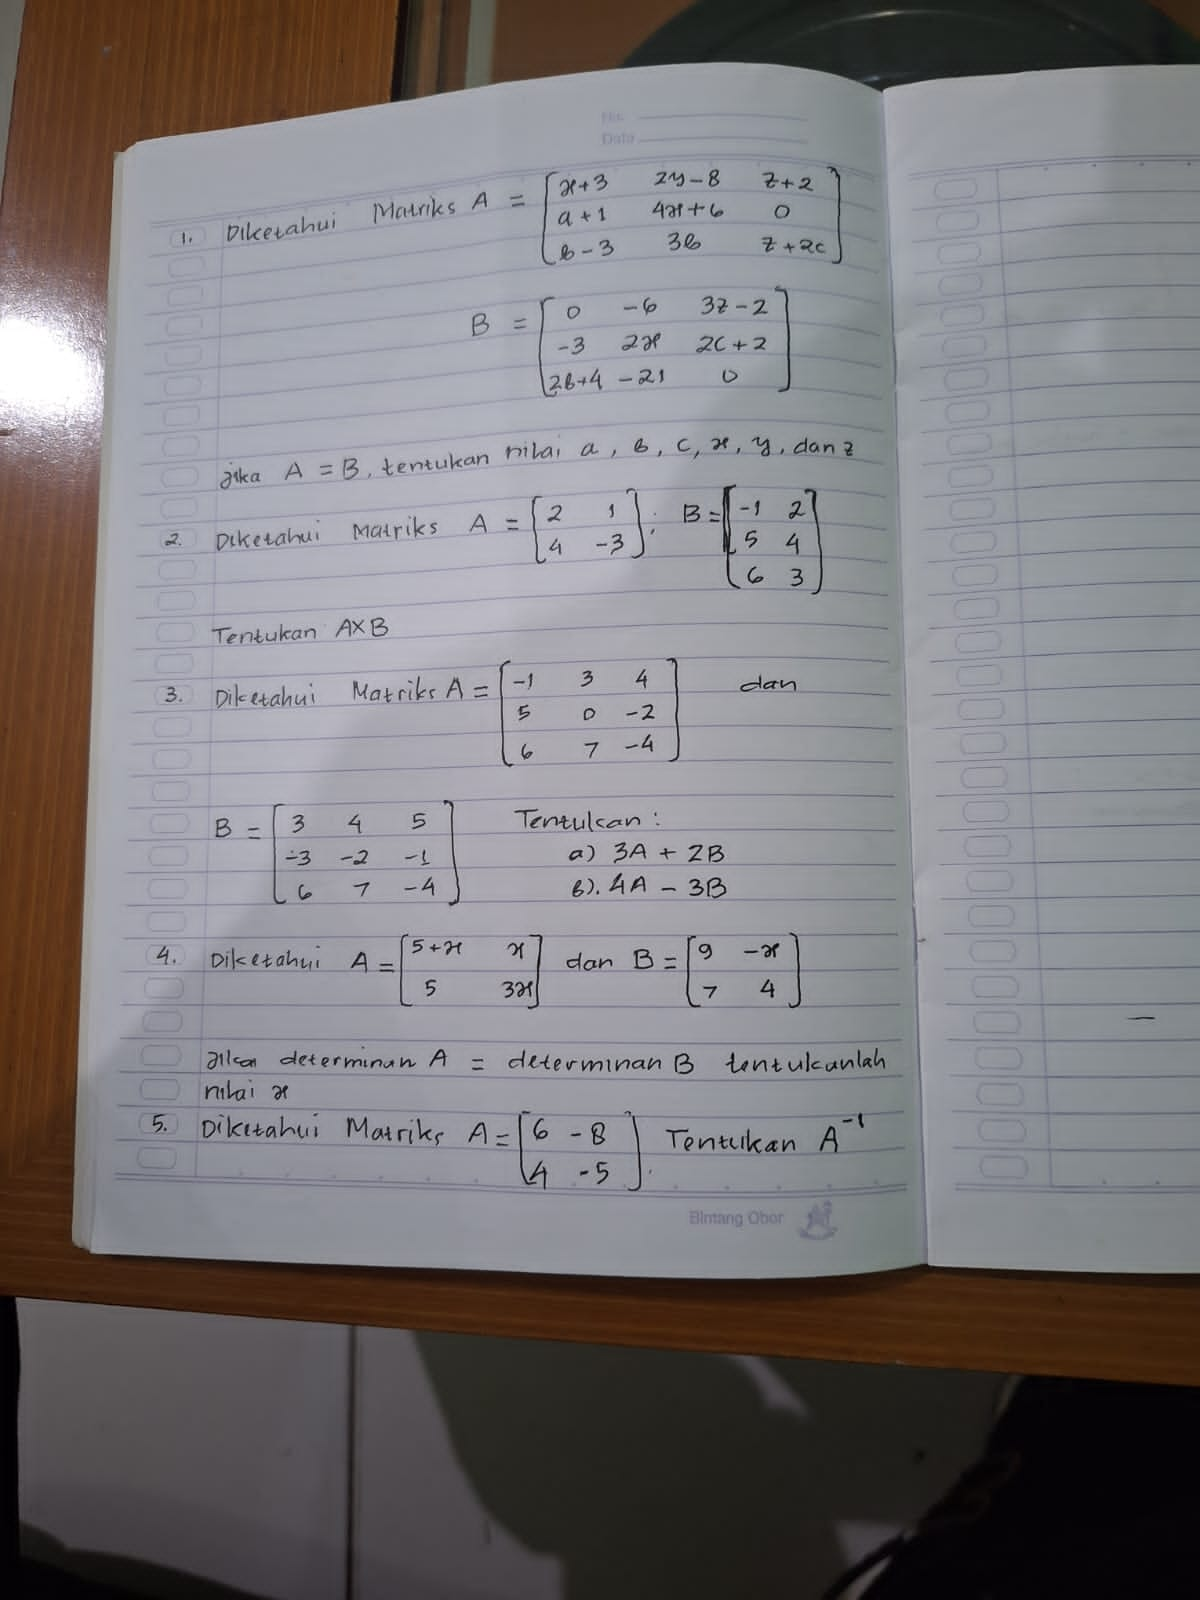 No:
Date
1. Diketahui Matriks A = [x+3 2y-8 z+2
a+1 4x+6 0
b-3 3b z+2c]
B = [0 -6 3z-2
-3 2x 2c+2
2b+4 -21 0]
jika A = B, tentukan nilai a, b, c, x, y, dan z
2. Diketahui Matriks A = [2 1
4 -3]; B = [-1 2
5 4
6 3]
Tentukan AXB
3. Diketahui Matriks A = [-1 3 4
5 0 -2
6 7 -4] dan
B = [3 4 5
-3 -2 -1
6 7 -4] Tentukan:
a) 3A + 2B
b). 4A - 3B
4. Diketahui A = [5+x x
5 3x] dan B = [9 -x
7 4]
jika determinan A = determinan B tentukanlah
nilai x
5. Diketahui Matriks A = [6 -8
4 -5]. Tentukan A⁻¹
Bintang Obor